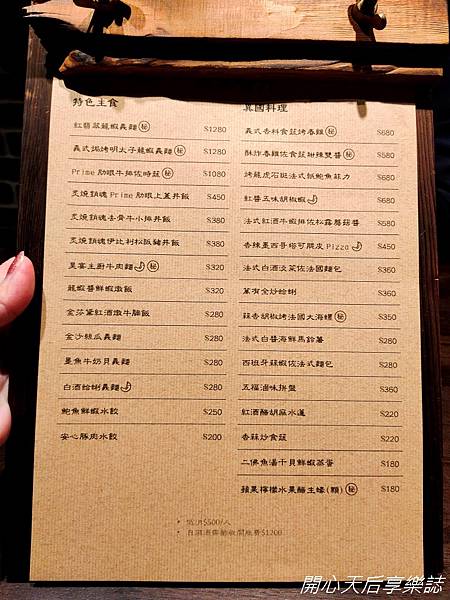 特色主食
紅醬蔬龍蝦義麵 秘 $1280
義式焗烤明太子龍蝦義麵 秘 $1280
Prime 肋眼牛排佐時蔬 秘 $1080
炙燒銷魂 Prime 肋眼上蓋丼飯 $450
炙燒銷魂去骨牛小排丼飯 $380
炙燒銷魂伊比利松阪豬丼飯 $380
宴主廚牛肉麵 秘 $320
龍蝦醬鮮蝦燉飯 $320
金莎黛紅酒燉牛腩飯 $280
金沙絲瓜義麵 $280
墨魚牛奶貝義麵 $280
白酒蛤蜊義麵 $280
鮑魚鮮蝦水餃 $250
安心豚肉水餃 $200
異國料理
義式香料食蔬烤春雞 秘 $680
酥炸春雞佐食蔬甜辣雙醬 秘 $580
烤龍虎石斑法式紙鮑魚菲力 $680
紅醬五味胡椒蝦 $680
法式紅酒牛蝦排佐松露蘑菇醬 $580
香辣墨西哥塔可脆皮 Pizza $450
法式白酒淡菜佐法國麵包 $360
萬有全炒蛤蜊 $360
蒜香胡椒烤法國大海螺 秘 $350
法式白醬海鮮馬鈴薯 $280
西班牙蒜蝦佐法式麵包 $280
五福滷味拼盤 $360
紅酒醋胡麻水蓮 $220
香蒜炒食蔬 $220
二佛魚湯干貝鮮蝦蒸蛋 $180
蘋果檸檬水果醋生蠔(顆) 秘 $180
• 低消$500/人
• 自備酒類酌收開瓶費$1200
開心天后享樂誌